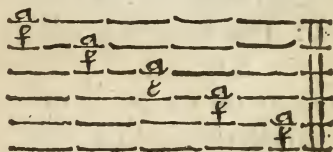 a
f a
f a
e a
f a
f